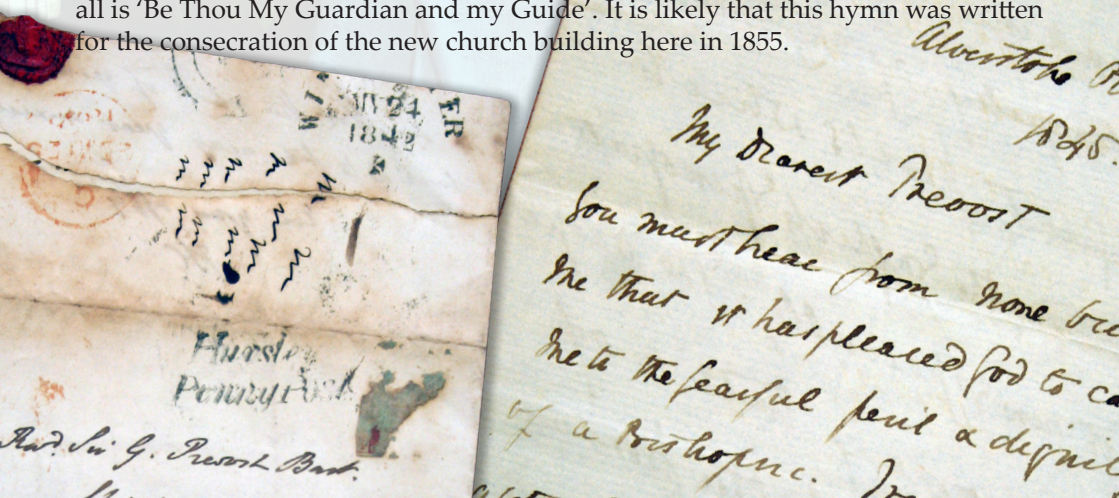 all is ‘Be Thou My Guardian and my Guide’. It is likely that this hymn was written
for the consecration of the new church building here in 1855.
24
184
Hursley
Penny Post
Revd. Sir G. Prevost Bart.
Alverstoke
1845.
My Dearest Prevost
You must hear from none
Me that it has pleased God to
Me to the fearful peril & digni
of a Bishopric.